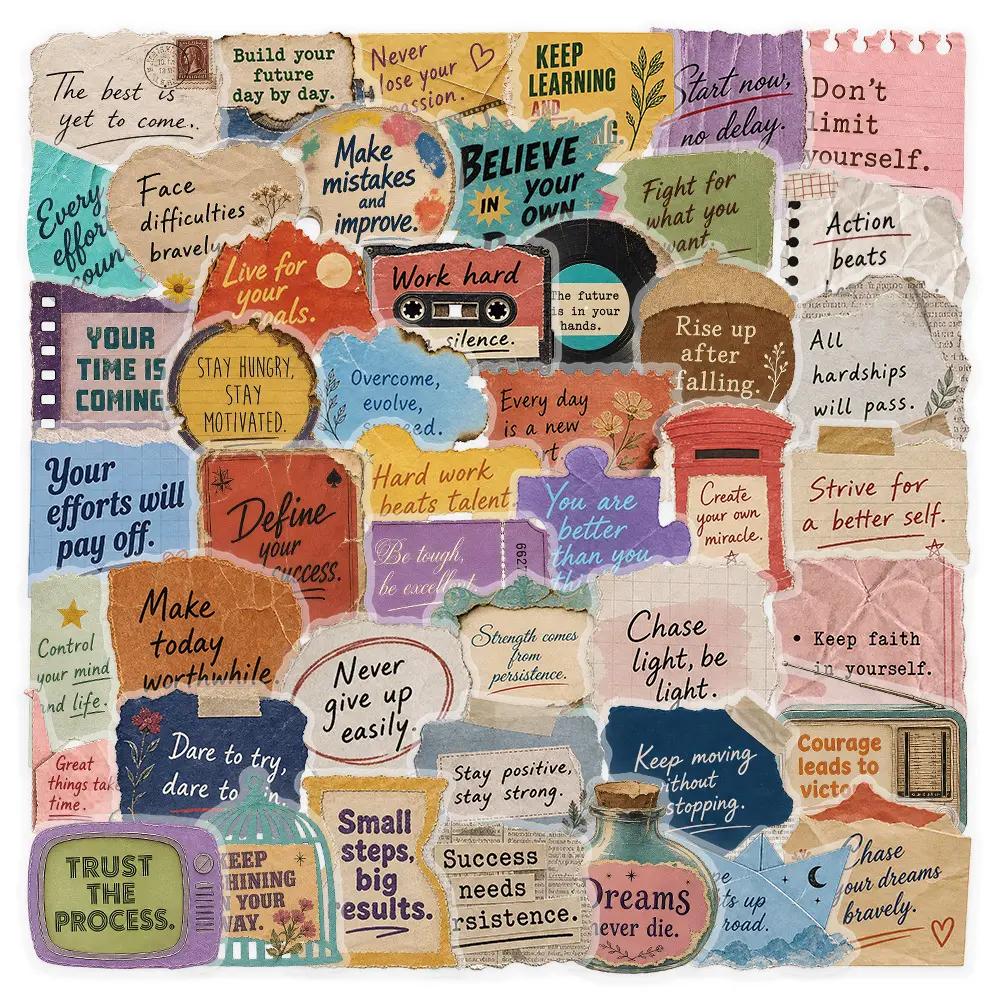 The best is
yet to come.
Build your
future
day by day.
Never
lose your
passion.
KEEP
LEARNING
AND
Start now,
no delay.
Don't
limit
yourself.
Every
effort
Face
difficulties
bravely
Make
mistakes
and
improve.
BELIEVE
IN YOUR
OWN
Fight for
what you
want
Action
beats
Live for
your
goals.
Work hard
silence.
The future
is in your
hands.
Rise up
after
falling.
All
hardships
will pass.
YOUR
TIME IS
COMING
STAY HUNGRY,
STAY
MOTIVATED.
Overcome,
evolve,
succeed.
Every day
is a new
Your
efforts will
pay off.
Define
your
success.
Hard work
beats talent
You are
better
than you
Create
your own
miracle.
Strive for
a better self.
Be tough,
be excellent
662
Control
your mind
and life.
Make
today
worthwhile
Never
give up
easily.
Strength comes
from
persistence.
Chase
light, be
light.
• Keep faith
in yourself.
Great
things take
time.
Dare to try,
dare to
Stay positive,
stay strong.
Keep moving
without
stopping.
Courage
leads to
victo
TRUST
THE
PROCESS.
KEEP
SHINING
IN YOUR
WAY.
Small
steps,
big
results.
Success
needs
persistence.
Dreams
never die.
up
road.
Chase
your dreams
bravely.